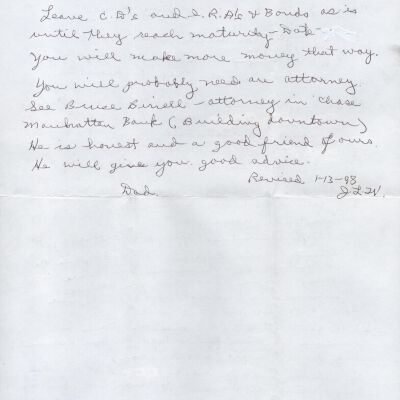 Leave C.D's and I.R.A's & Bonds as is
until they reach maturity - Date -
You will make more money that way.
You will probably need are attorney.
See Bruce - attorney in Chase
Manhattan Bank (Building downtown)
He is honest and a good friend of ours.
He will give you good advice.
Revised 1-13-98
Dad. J.L.W.